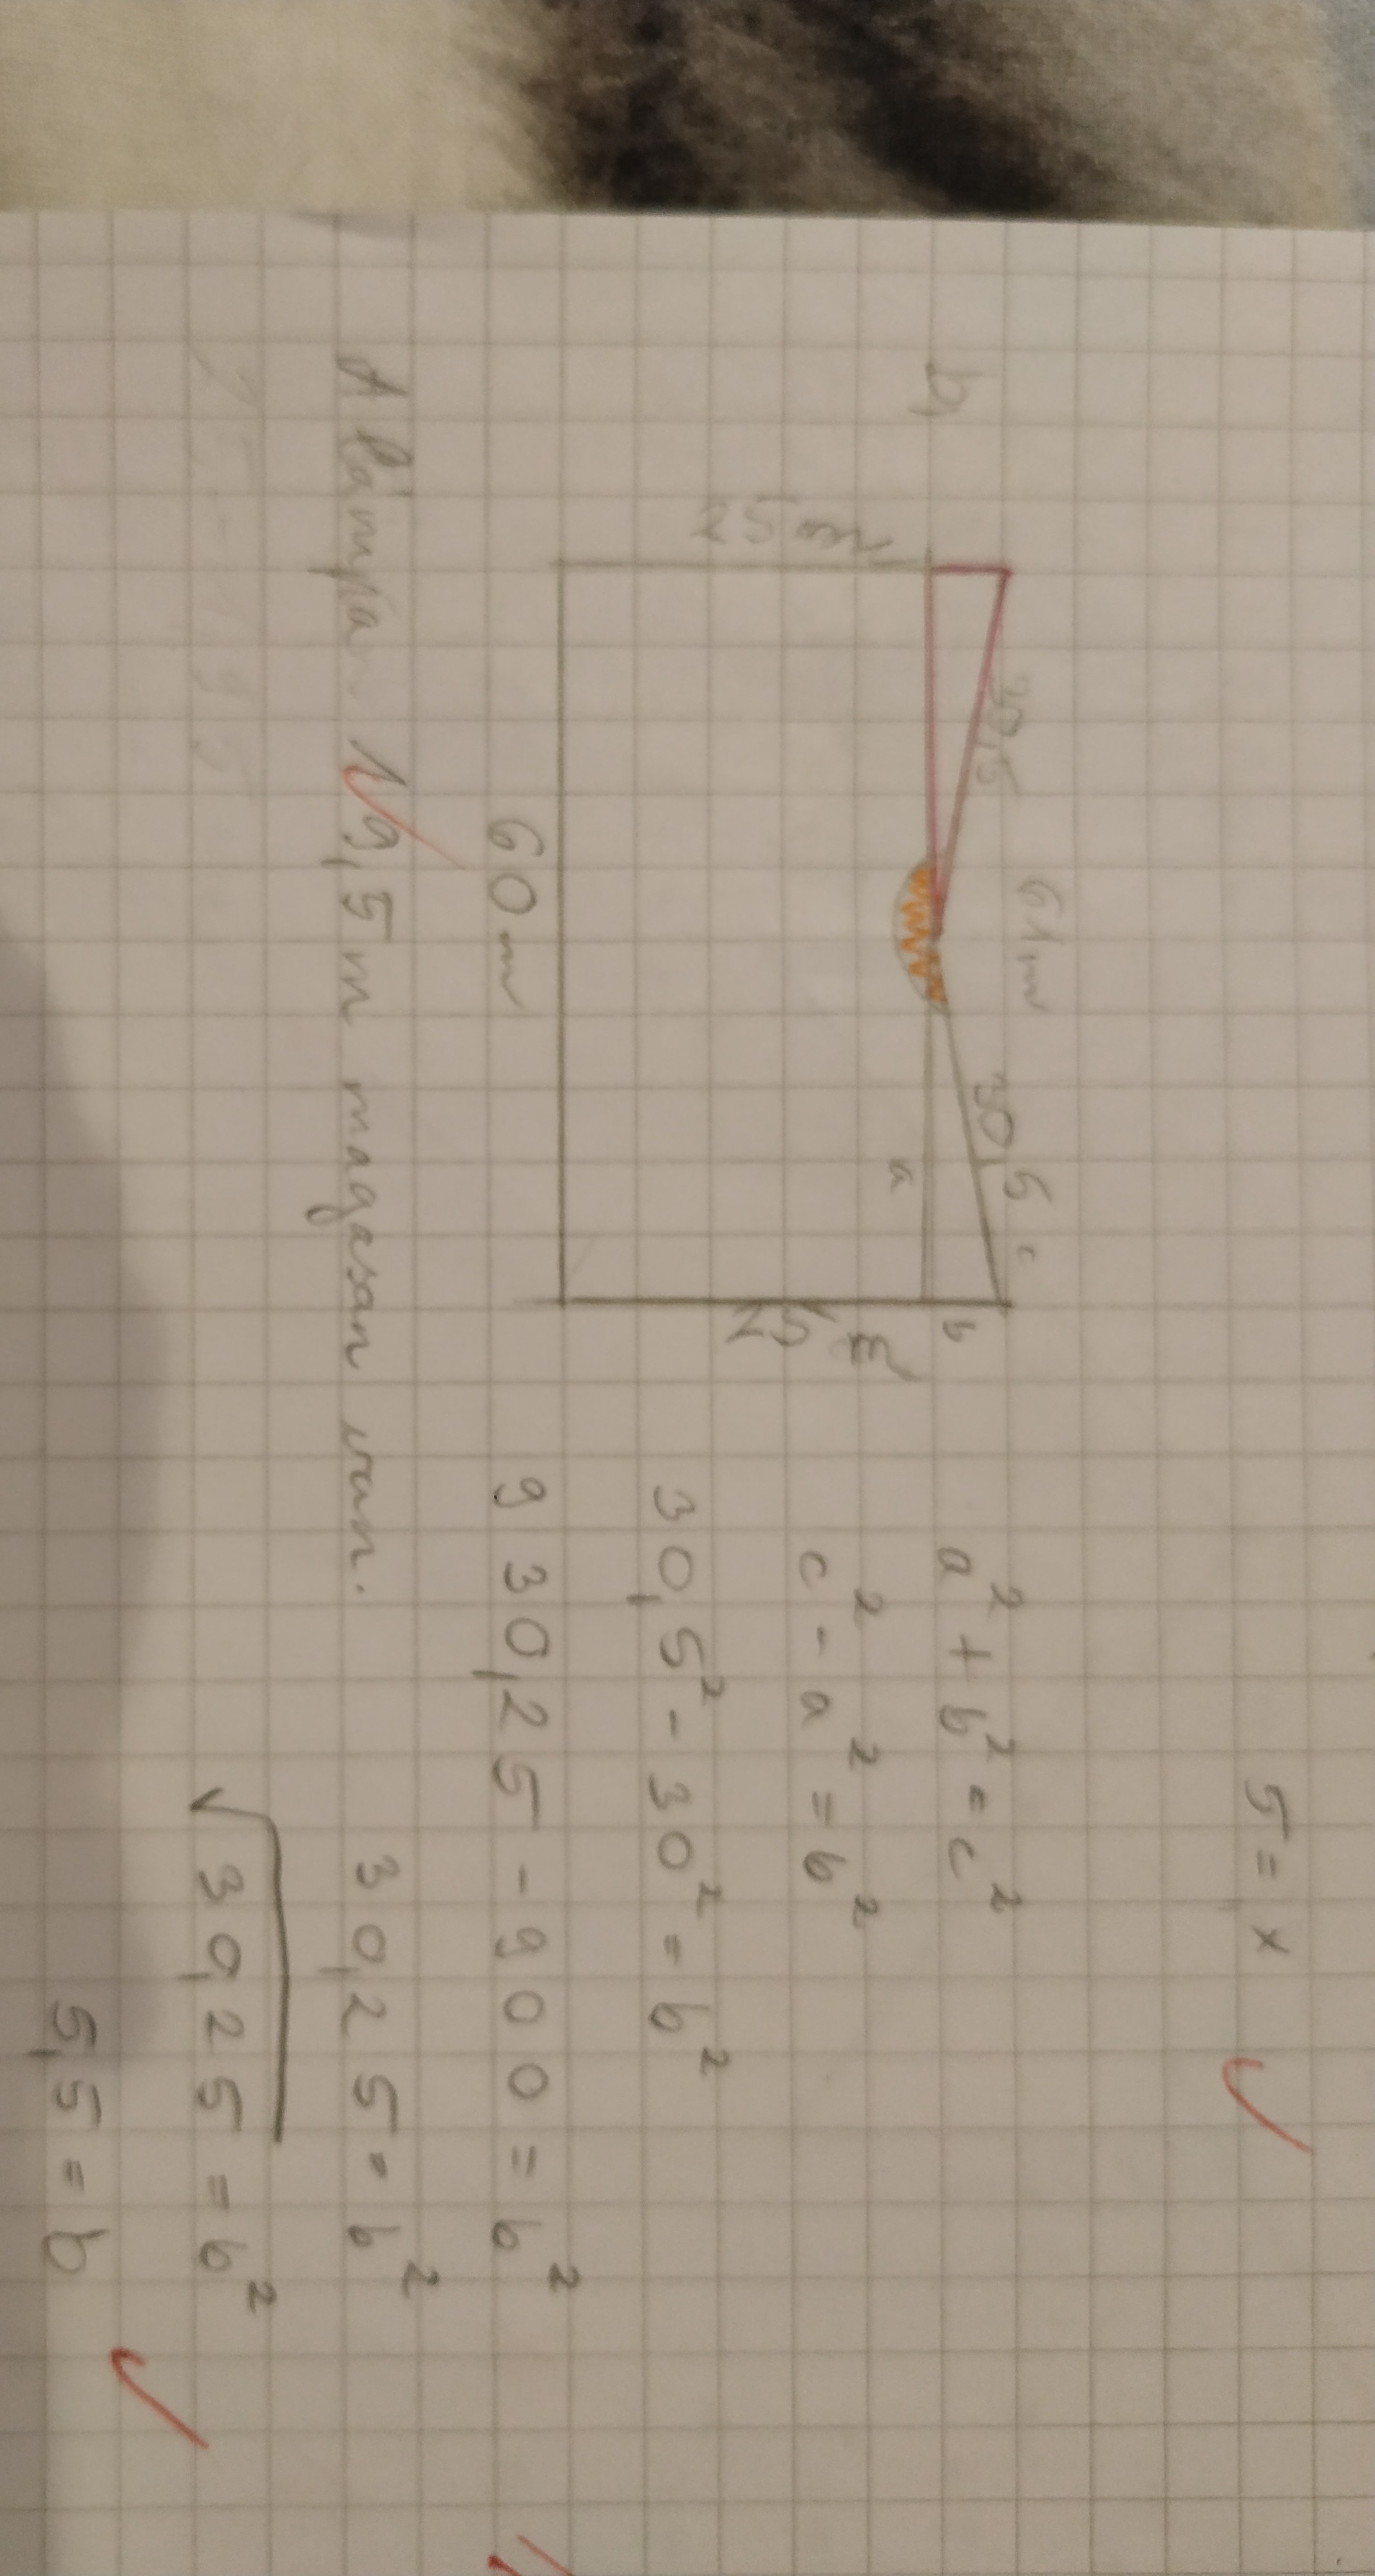 5 = x
b,
61 m
30,5
30,5
c
a
b
25 m
25 m
60 m
a² + b² = c²
c² - a² = b²
30,5² - 30² = b²
930,25 - 900 = b²
30,25 = b²
√30,25 = b²
5,5 = b
A lámpa 19,5 m magasan van.